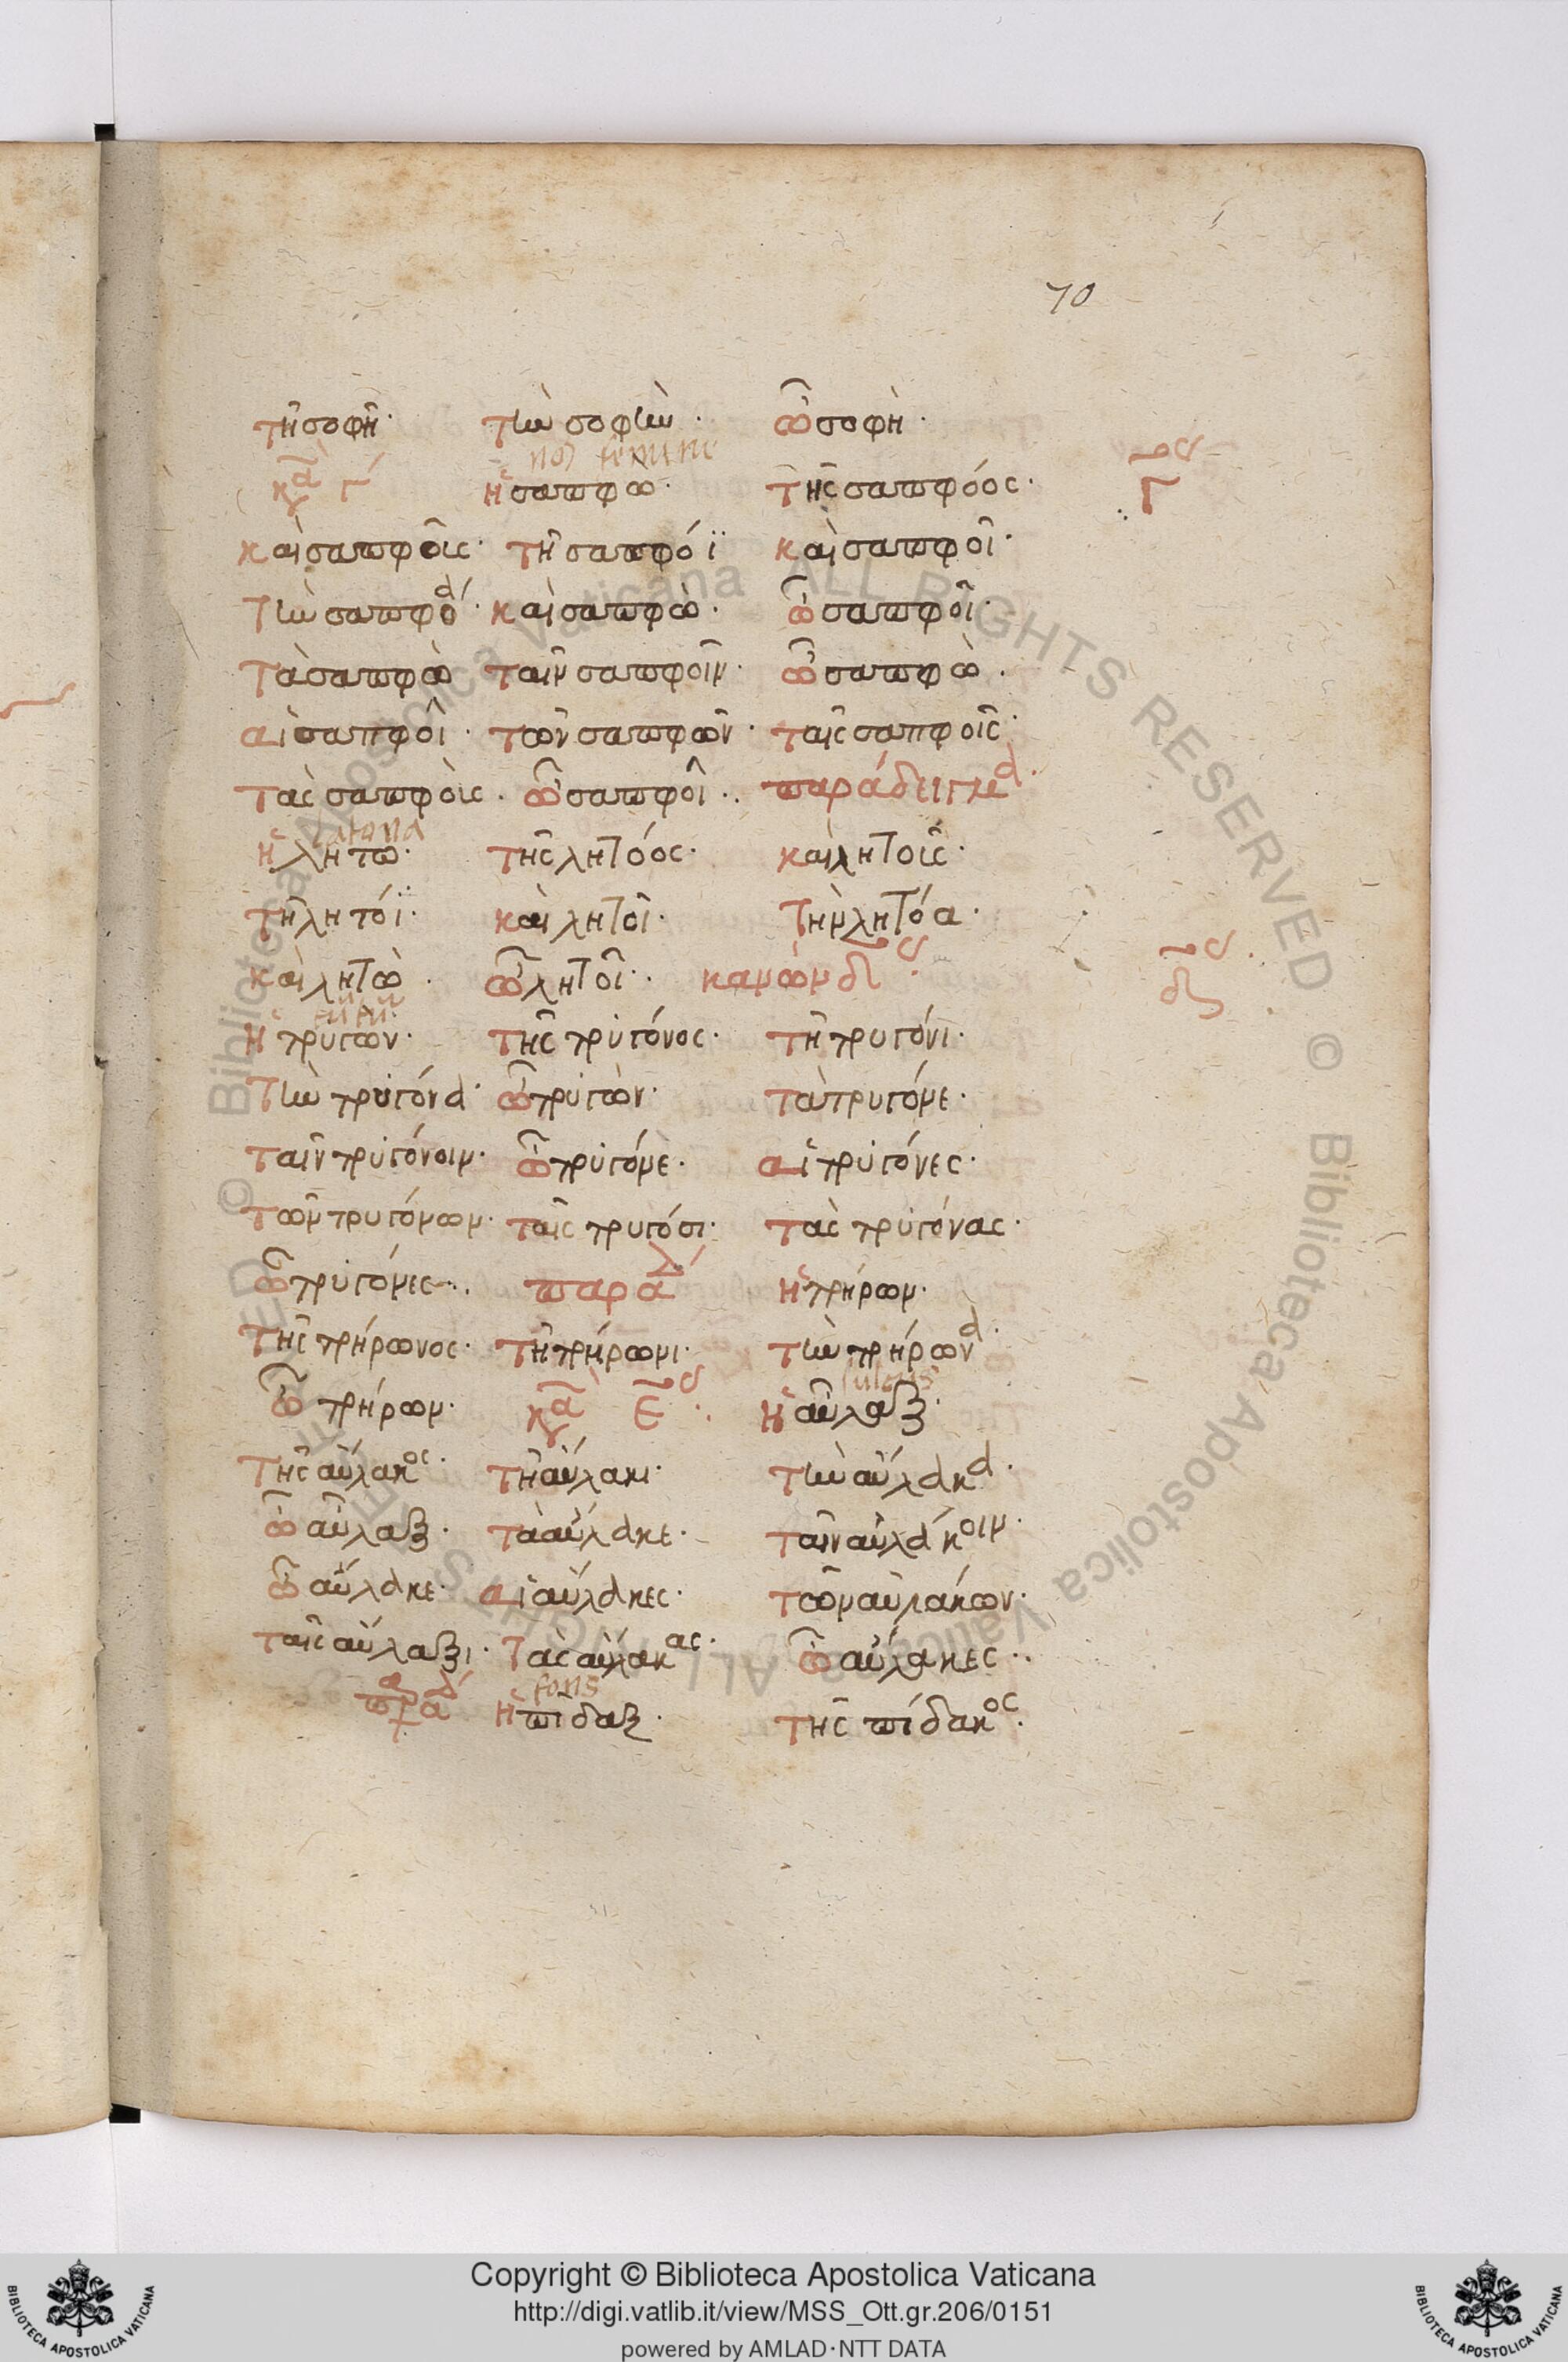 70
τῆ σοφῆ· τὴν σοφὴν· ὦ σοφὴ·
κα γ ἡ σαπφω· τῆς σαπφόος· γος
καὶ σαπφοῖς· τῆ σαπφόϊ καὶ σαπφοῖ·
τὴν σαπφόα· καὶ σαπφὼ· ὦ σαπφοῖ·
τὰ σαπφὼ ταῖν σαπφοῖν· ὦ σαπφὼ·
αἱ σαπφοὶ· τῶν σαπφῶν· ταῖς σαπφοῖς·
τὰς σαπφοὶς· ὦ σαπφοῖ·. παράδειγμα·
latona
ἡ λητὼ· τῆς λητόος· καὶ λητοῖς·
τῆ λητόϊ· καὶ λητοῖ· τὴν λητόα·
καὶ λητὼ· ὦ λητοῖ·. κανὼν δος· δος·
ἡ τρυγὼν· τῆς τρυγόνος· τῆ τρυγόνι·
τὴν τρυγόνα· ὦ τρυγὼν· τὰ τρυγόνε·
ταῖν τρυγόνοιν· ὦ τρυγόνε· αἱ τρυγόνες·
τῶν τρυγόνων· ταῖς τρυγόσι· τὰς τρυγόνας·
ὦ τρυγόνες·. παραδ ἡ τρήρων·
τῆς τρήρωνος· τῆ τρήρωνι· τὴν τρήρωνα·
ὦ τρήρων· κα εος·. ἡ αὖλαξ·
τῆς αὔλακος· τῆ αὔλακι· τὴν αὔλακα·
ὦ αὖλαξ· τὰ αὔλακε· ταῖν αὐλάκοιν·
ὦ αὔλακε· αἱ αὔλακες· τῶν αὐλάκων·
ταῖς αὔλαξι· τὰς αὔλακας· ὦ αὔλακες·.
fons
παρα ἡ πίδαξ· τῆς πίδακος·
Copyright © Biblioteca Apostolica Vaticana
http://digi.vatlib.it/view/MSS_Ott.gr.206/0151
powered by AMLAD·NTT DATA